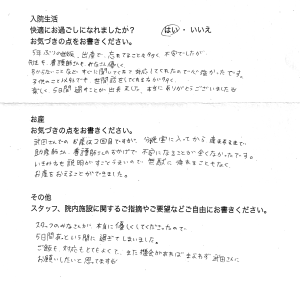 入院生活
快適にお過ごしになれましたか? はい・いいえ
お気づきの点をお書きください。
5年ぶりの出産、出産で、忘れてることも多く不安でしたが
先生も看護師さんもみなさん優しく
わからないことなどすぐに聞いてくれて対応してくれたので心強かったです。
楽しく5日間過すことが出来ました。本当にありがとうございました
お産
お気づきの点をお書きください。
武田さんでのお産は2回目ですが、分娩室に入ってから産まれるまで、
助産師さん、看護師さんのおかげで不安になることが全くなかったです。
いきみ方も説明がすごくうまいので、無駄に疲れることもなく、
お産をおえることができました。
その他
スタッフ、院内施設に関するご指摘やご要望などご自由にお書きください。
スタッフのみなさんが本当に優しくしてくださったので、
5日間あっという間に過ぎてしまいました。
ご飯も対応もとてもよくて、また機会があればまよわず武田さんに
お願いしたいと思ってますが